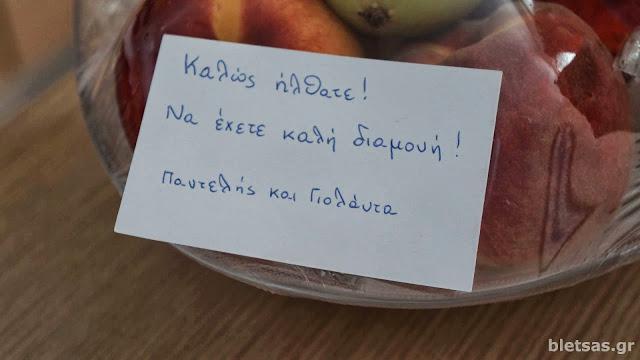 Καλώς ήλθατε!
Να έχετε καλή διαμονή!
Παντελής και Γιολάντα
bletsas.gr